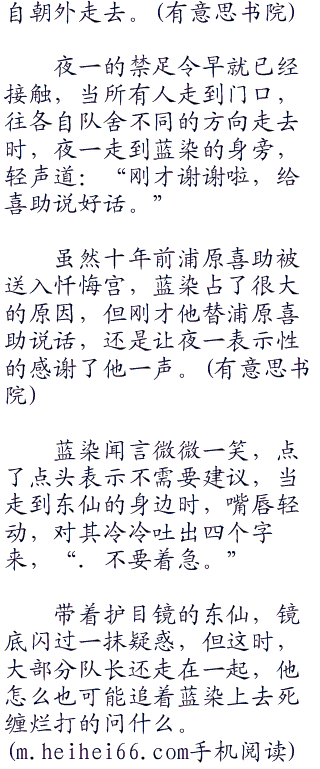 自朝外走去。(有意思书院)
夜一的禁足令早就已经
接触，当所有人走到门口，
往各自队舍不同的方向走去
时，夜一走到蓝染的身旁，
轻声道：“刚才谢谢啦，给
喜助说好话。”
虽然十年前浦原喜助被
送入忏悔宫，蓝染占了很大
的原因，但刚才他替浦原喜
助说话，还是让夜一表示性
的感谢了他一声。(有意思书
院)
蓝染闻言微微一笑，点
了点头表示不需要建议，当
走到东仙的身边时，嘴唇轻
动，对其冷冷吐出四个字
来，“．不要着急。”
带着护目镜的东仙，镜
底闪过一抹疑惑，但这时，
大部分队长还走在一起，他
怎么也可能追着蓝染上去死
缠烂打的问什么。
(m.heihei66.com手机阅读)